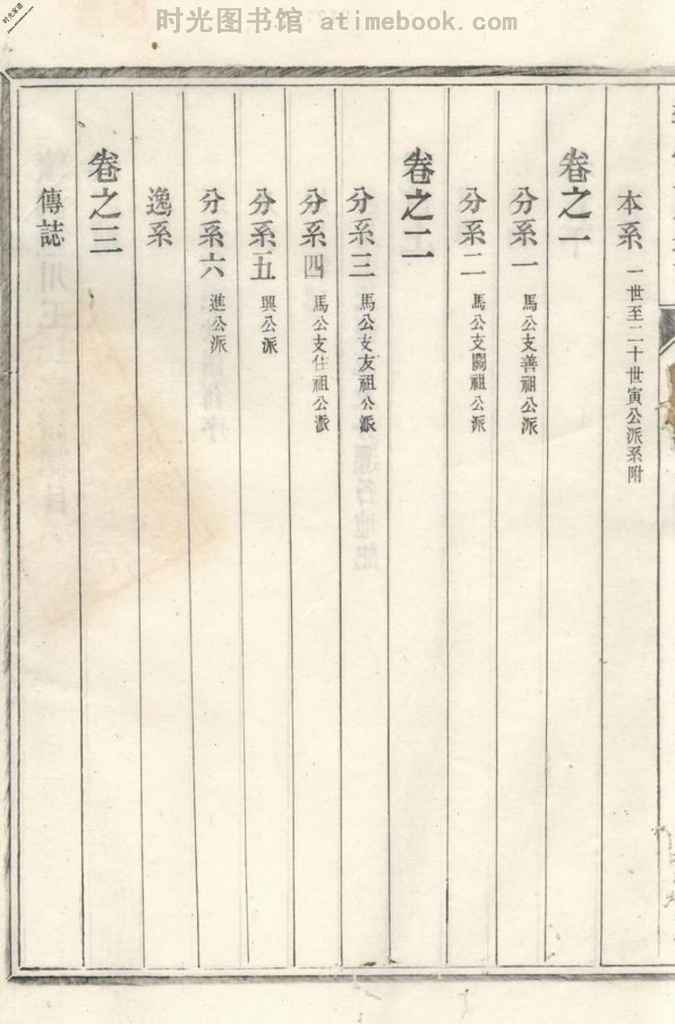 时光图书馆 atimebook.com
时光家谱
本系 一世至二十世寅公派系附
卷之一
分系一 馬公支善祖公派
分系二 馬公支閣祖公派
卷之二
分系三 馬公支友祖公派
分系四 馬公支住祖公派
分系五 興公派
分系六 進公派
逸系
卷之三
傳誌